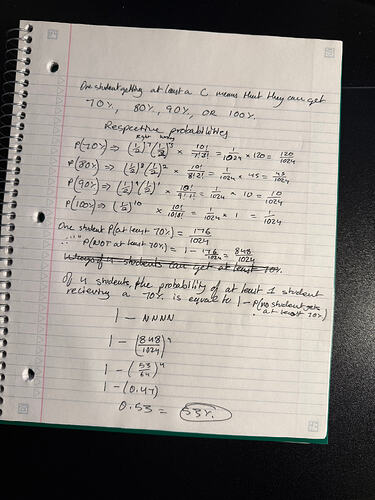 One student getting at least a C means that they can get
70%, 80%, 90%, OR 100%.
Respective probabilities
right wrong
P(70%) ⇒ (1/2)^7 (1/2)^3 × 10!/7!3! = 1/1024 × 120 = 120/1024
P(80%) ⇒ (1/2)^8 (1/2)^2 × 10!/8!2! = 1/1024 × 45 = 45/1024
P(90%) ⇒ (1/2)^9 (1/2)^1 × 10!/9!1! = 1/1024 × 10 = 10/1024
P(100%) ⇒ (1/2)^10 × 10!/10!0! = 1/1024 × 1 = 1/1024
One student P(at least 70%) = 176/1024
∴ " " P(NOT at least 70%) = 1 - 176/1024 = 848/1024
of 4 students can get at least 70%.
Of 4 students, the probability of at least 1 student
recieving a 70% is equal to 1 - P(no student gets
at least 70%)
1 - NNNN
1 - (848/1024)^4
1 - (53/64)^4
1 - (0.47)
0.53 = 53%.